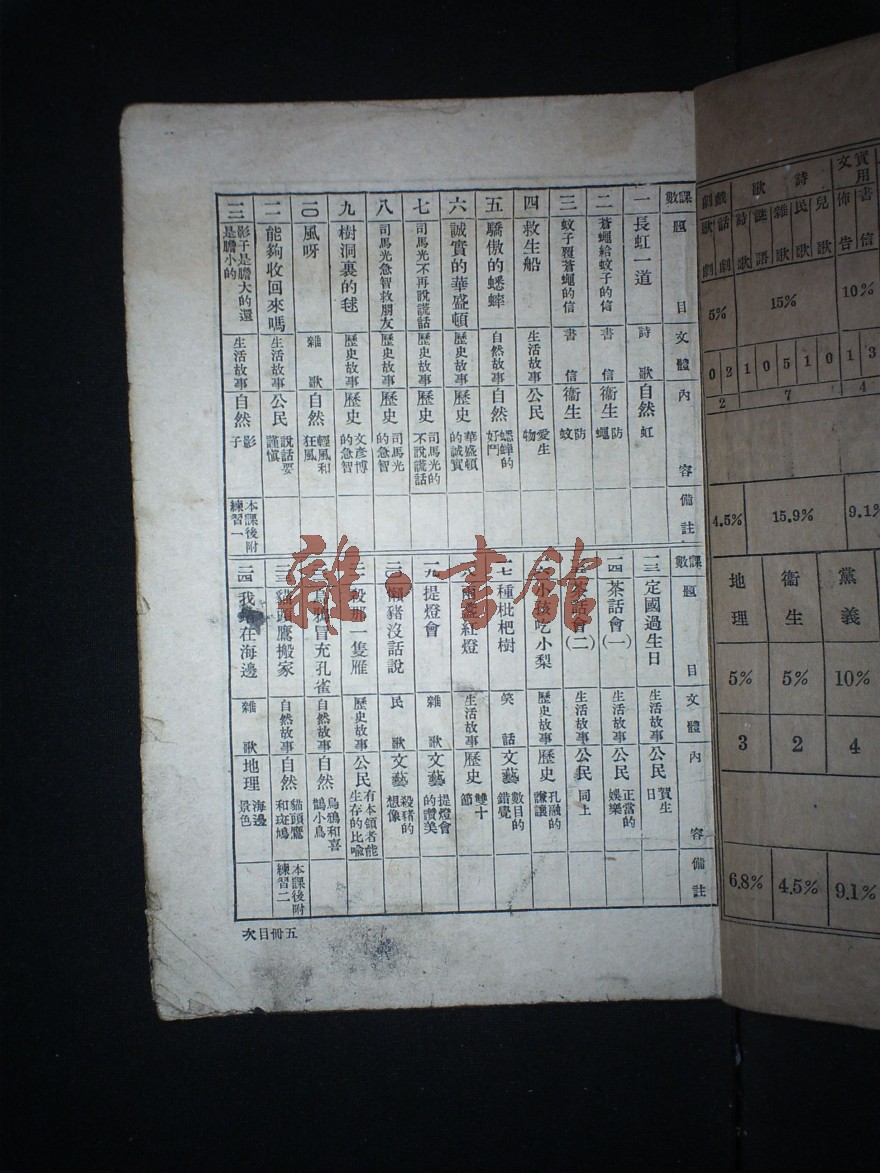 課數 題目 文體 內容 備註
一 長虹一道 詩歌 自然 虹
二 蒼蠅給蚊子的信 書信 衞生 防蠅
三 蚊子覆蒼蠅的信 書信 衞生 防蚊
四 救生船 生活故事 公民 愛生物
五 驕傲的蟋蟀 自然故事 自然 蟋蟀的好鬥
六 誠實的華盛頓 歷史故事 歷史 華盛頓的誠實
七 司馬光不再說謊話 歷史故事 歷史 司馬光的不說謊話
八 司馬光急智救朋友 歷史故事 歷史 司馬光的急智
九 樹洞裏的毬 歷史故事 歷史 文彥博的急智
一〇 風呀 雜歌 自然 輕風和狂風
一一 能夠收回來嗎 生活故事 公民 說話要謹慎
一二 影子是膽大的還是膽小的 生活故事 自然 影子 本課後附練習一
課數 題目 文體 內容 備註
一三 定國過生日 生活故事 公民 賀生日
一四 茶話會(一) 生活故事 公民 正當的娛樂
茶話會(二) 生活故事 公民 同上
小孩吃小梨 歷史故事 歷史 孔融的謙讓
一七 種枇杷樹 笑話 文藝 數目的錯覺
兩盞紅燈 生活故事 歷史 雙十節
一九 提燈會 雜歌 文藝 提燈會的讚美
二〇 懶豬沒話說 民歌 文藝 殺豬的想像
殺那一隻雁 歷史故事 公民 有本領者能生存的比喻
鴉冒充孔雀 自然故事 自然 烏鴉和喜鵲小鳥
二三 貓頭鷹搬家 自然故事 自然 貓頭鷹和斑鳩 本課後附練習二
二四 我 在海邊 雜歌 地理 海邊景色
五冊目次
雜·書館
實用文 詩歌 戲劇
書信 佈告 兒歌 民歌 雜歌 謎語 詩歌 話劇 歌劇
10% 15% 5%
3 1 0 1 5 0 1 2 0
4 7 2
9.1% 15.9% 4.5%
黨義 衞生 地理
10% 5% 5%
4 2 3
9.1% 4.5% 6.8%